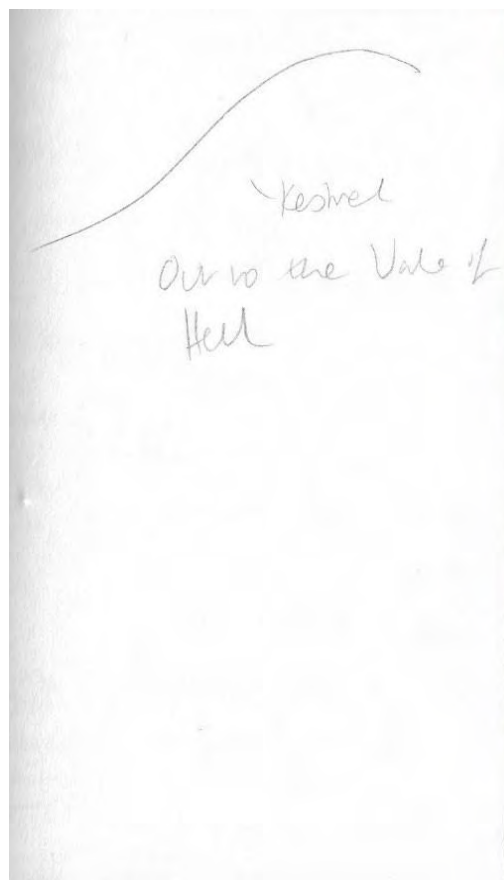 Kestrel
Out to the Vale of
Hell